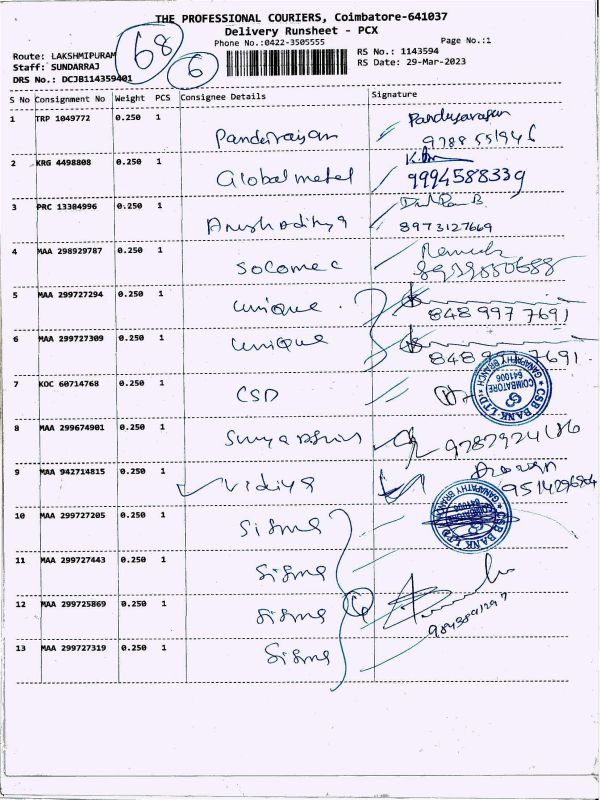 THE PROFESSIONAL COURIERS, Coimbatore-641037
Delivery Runsheet - PCX
Phone No.:0422-3505555
Page No.:1
Route: LAKSHMIPURAM
Staff: SUNDARRAJ
DRS No.: DCJB114359401
68
6
RS No.: 1143594
RS Date: 29-Mar-2023
S No Consignment No Weight PCS Consignee Details Signature
1 TRP 1049772 0.250 1
Pandiyarajan
2 KRG 4498808 0.250 1
Globalmetal 9994588339
3 PRC 13384996 0.250 1
8973127669
4 MAA 298929787 0.250 1
Socomec Ramesh
5 MAA 299727294 0.250 1
unique 848 997 7691
6 MAA 299727309 0.250 1
unique 848 997 7691
7 KOC 60714768 0.250 1
CSD
CSB BANK LTD
GANAPATHY BRANCH
COIMBATORE
641006
8 MAA 299674901 0.250 1
9 MAA 942714815 0.250 1
Vidiya
10 MAA 299727205 0.250 1
Sigma
CSB BANK LTD
GANAPATHY BRANCH
11 MAA 299727443 0.250 1
Sigma
12 MAA 299725869 0.250 1
Sigma
13 MAA 299727319 0.250 1
Sigma